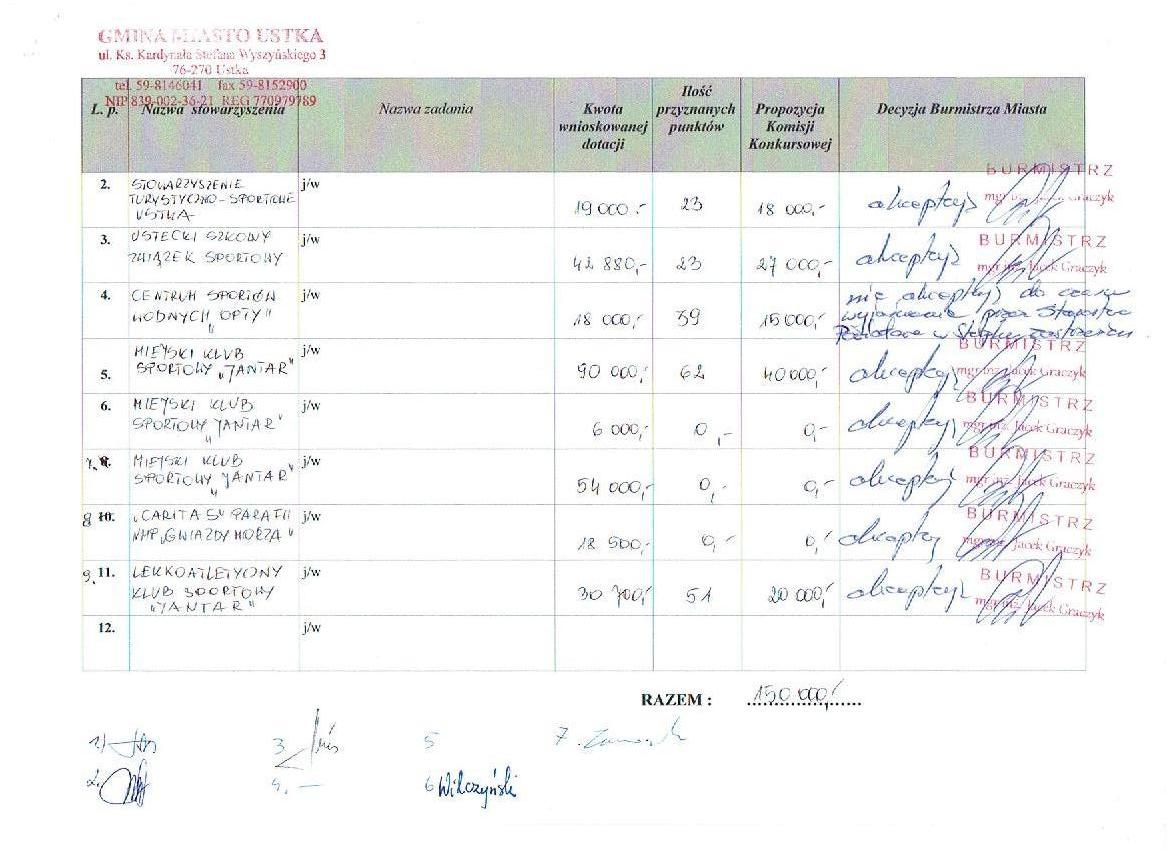 GMINA MIASTO USTKA
ul. Ks. Kardynała Stefana Wyszyńskiego 3
76-270 Ustka
tel. 59-8146041 fax 59-8152900
NIP 839-002-36-21 REG 770979789
L. p. Nazwa stowarzyszenia Nazwa zadania Kwota wnioskowanej dotacji Ilość przyznanych punktów Propozycja Komisji Konkursowej Decyzja Burmistrza Miasta
2. STOWARZYSZENIE TURYSTYCZNO-SPORTOWE USTKA j/w 19 000.- 23 18 000,- akceptuję
BURMISTRZ
Jacek Graczyk
3. USTECKI SZKOLNY ZWIĄZEK SPORTOWY j/w 42 880,- 23 27 000,- akceptuję
BURMISTRZ
mgr inż. Jacek Graczyk
4. CENTRUM SPORTÓW WODNYCH "OPTY" j/w 18 000,- 39 15 000,- nie akceptuję do czasu
wyjaśnienia przez Starostwo
Powiatowe w Słupsku zastrzeżeń
BURMISTRZ
mgr inż. Jacek Graczyk
5. MIEJSKI KLUB SPORTOWY "JANTAR" j/w 90 000,- 62 40 000,- akceptuję
BURMISTRZ
mgr inż. Jacek Graczyk
6. MIEJSKI KLUB SPORTOWY "JANTAR" j/w 6 000,- 0,- 0,- akceptuję
BURMISTRZ
mgr inż. Jacek Graczyk
7. MIEJSKI KLUB SPORTOWY "JANTAR" j/w 54 000,- 0,- 0,- akceptuję
BURMISTRZ
Jacek Graczyk
8 10. "CARITAS" PARAFII NMP "GWIAZDY MORZA" j/w 18 500,- 0,- 0,- akceptuję
BURMISTRZ
mgr inż. Jacek Graczyk
9. 11. LEKKOATLETYCZNY KLUB SPORTOWY "JANTAR" j/w 30 700,- 51 20 000,- akceptuję
12. j/w
RAZEM : 150 000,-
1)
3
5
7.
2.
4. —
6 Wilczyński